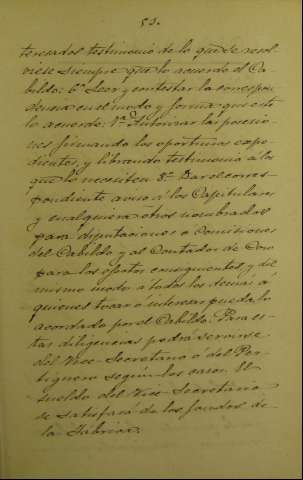 83.
teresados testimonio de lo que se resol
viese siempre que lo acuerde el Ca-
bildo: 6º Leer y contestar la correspon
dencia en el modo y forma que este
lo acuerde: 7º Autorizar las posesio-
nes firmando los oportunos expe-
dientes, y librando testimonio á los
que lo necesiten 8º Dar el corres-
pondiente aviso á los Capitulares
y cualquiera otros nombrados
para diputaciones ó Comisiones
del Cabildo y al Contador de Coro
para los efectos consiguientes, y del
mismo modo á todos los demás á
quienes tocar ó interesar pueda lo
acordado por el Cabildo. Para es-
tas diligencias podrá servirse
del Vice-Secretario ó del Per-
tiguero segun los casos. El
sueldo del Vice-Secretario
se satisfará de los fondos de
la Fábrica.